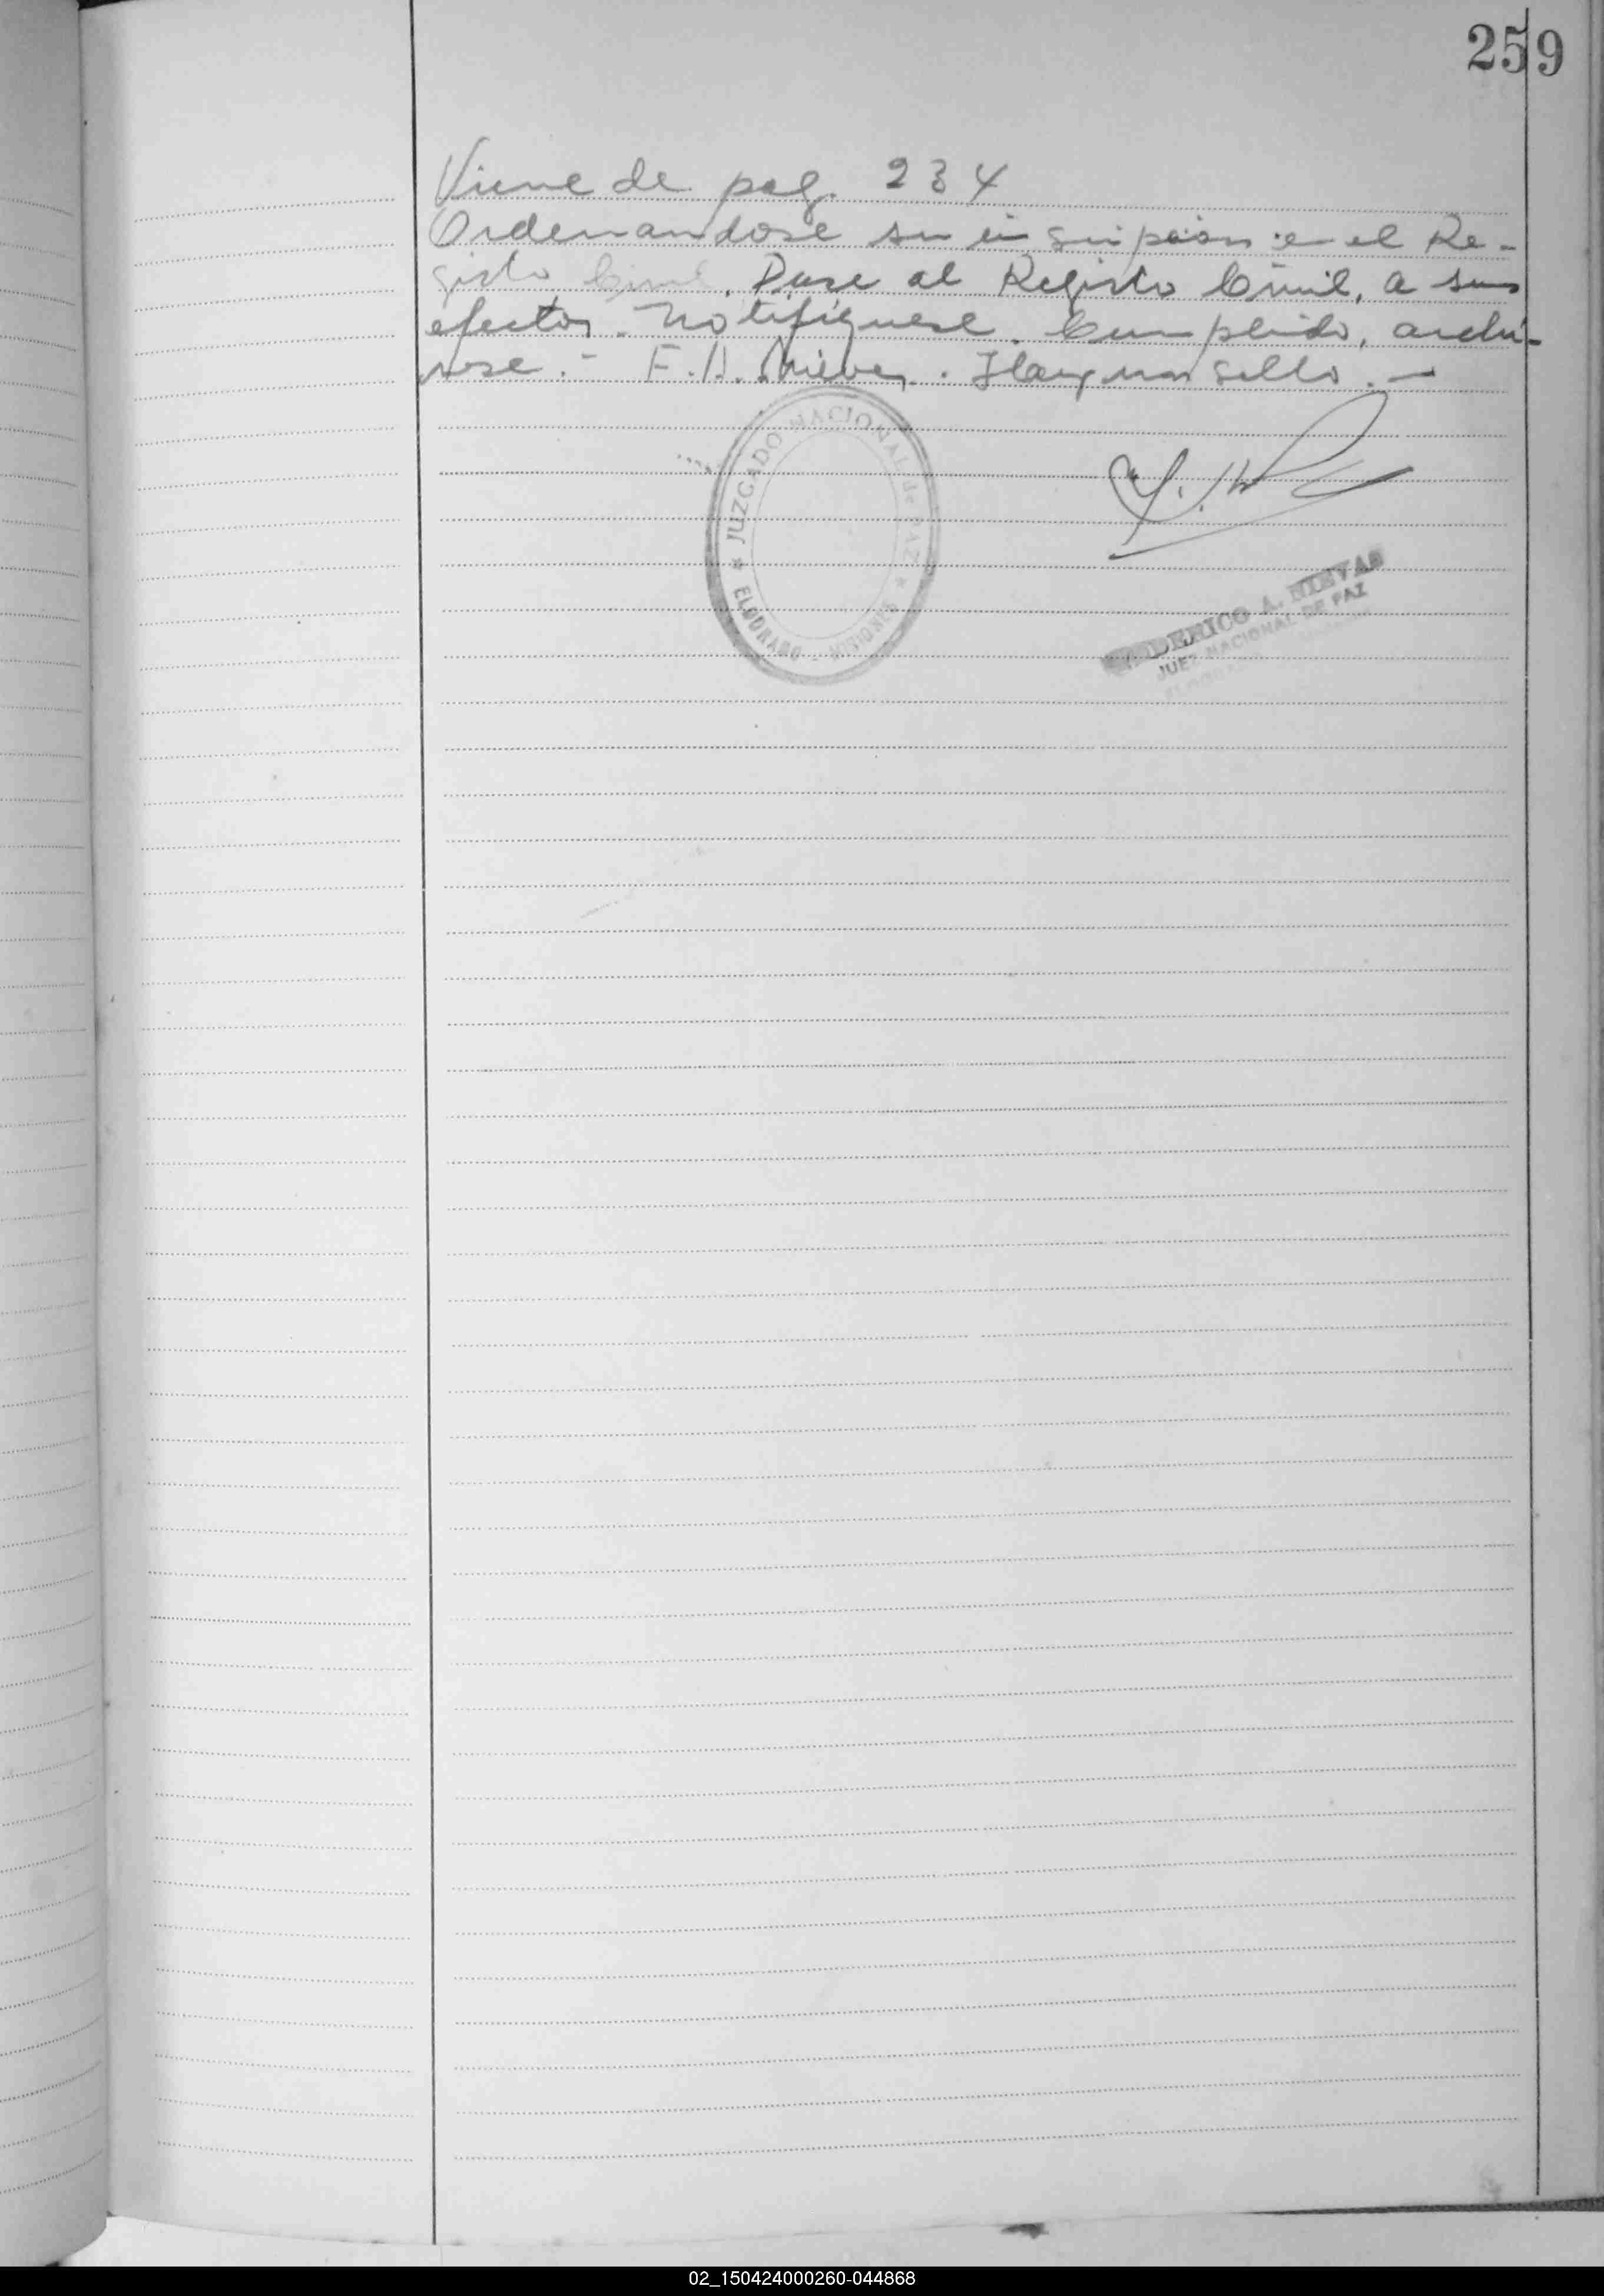 259
Viene de pag. 234
Ordenandose su inscripcion en el Re-
gistro Civil. Pase al Registro Civil, a sus
efectos. Notifiquese. Cumplido, archi-
vese.- F.A. Nievas. Hay un sello.-
JUZGADO NACIONAL de PAZ
ELDORADO - MISIONES
FEDERICO A. NIEVAS
JUEZ NACIONAL DE PAZ
02_150424000260-044868